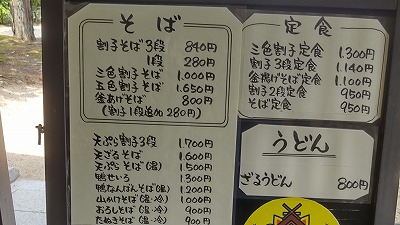 そば
割子そば3段 840円
1段 280円
三色割子そば 1.000円
五色割子そば 1.650円
釜あげそば 800円
(割子1段追加 280円)
天ぷら割子3段 1.700円
天ざるそば 1.600円
天ぷらそば(温) 1.500円
鴨せいろ 1.300円
鴨なんばんそば(温) 1.200円
山かけそば(温・冷) 1.000円
おろしそば(温・冷) 900円
たぬきそば(温・冷) 900円
定食
三色割子定食 1.300円
割子3段定食 1.140円
釜揚げそば定食 1.100円
割子2段定食 950円
そば定食 950円
うどん
ざるうどん 800円